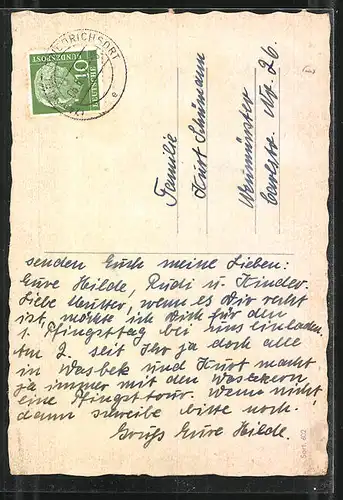 FRIEDRICHSORT
DEUTSCHE BUNDESPOST
10
Familie
Kurt Schümann
Neumünster
Carlstr. Nr. 26.
senden Euch meine Lieben:
Eure Hilde, Rudi u. Kinder.
Liebe Mutter, wenn es Dir recht
ist, möchte ich Dich für den
1. Pfingsttag bei uns einladen.
Am 2. seit Ihr ja doch alle
in Wasbek und Kurt macht
ja immer mit den
eine Pfingsttour. Wenn nicht,
dann schreibe bitte noch.
Gruß Eure Hilde.